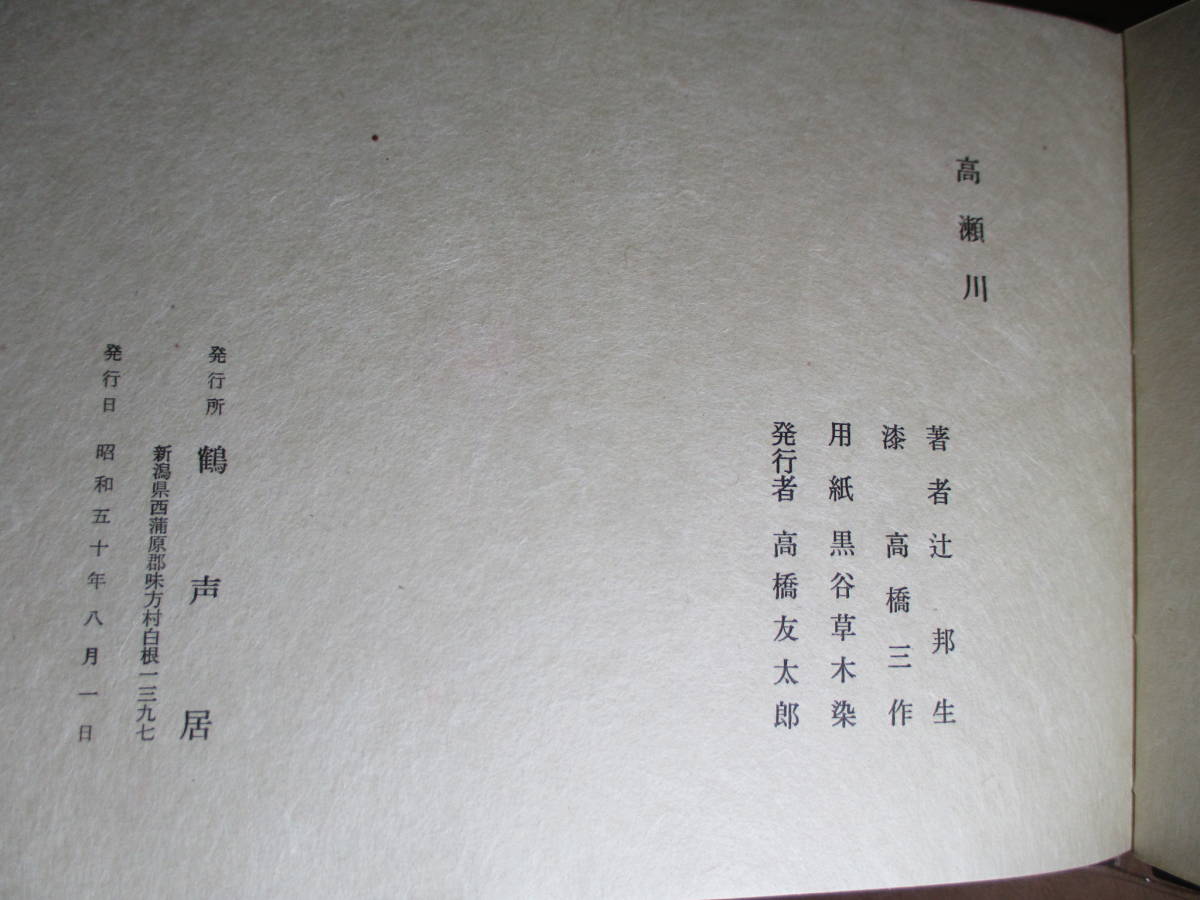 高瀬川
著者 辻邦生
漆 高橋三作
用紙 黒谷草木染
発行者 高橋友太郎
発行所 鶴声居
新潟県西蒲原郡味方村白根一三九七
発行日 昭和五十年八月一日